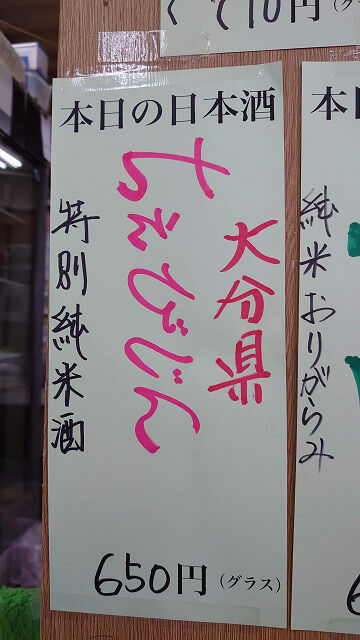 710円
本日の日本酒
大分県
ちえびじん
特別純米酒
650円（グラス）
本
純米おりがらみ
6